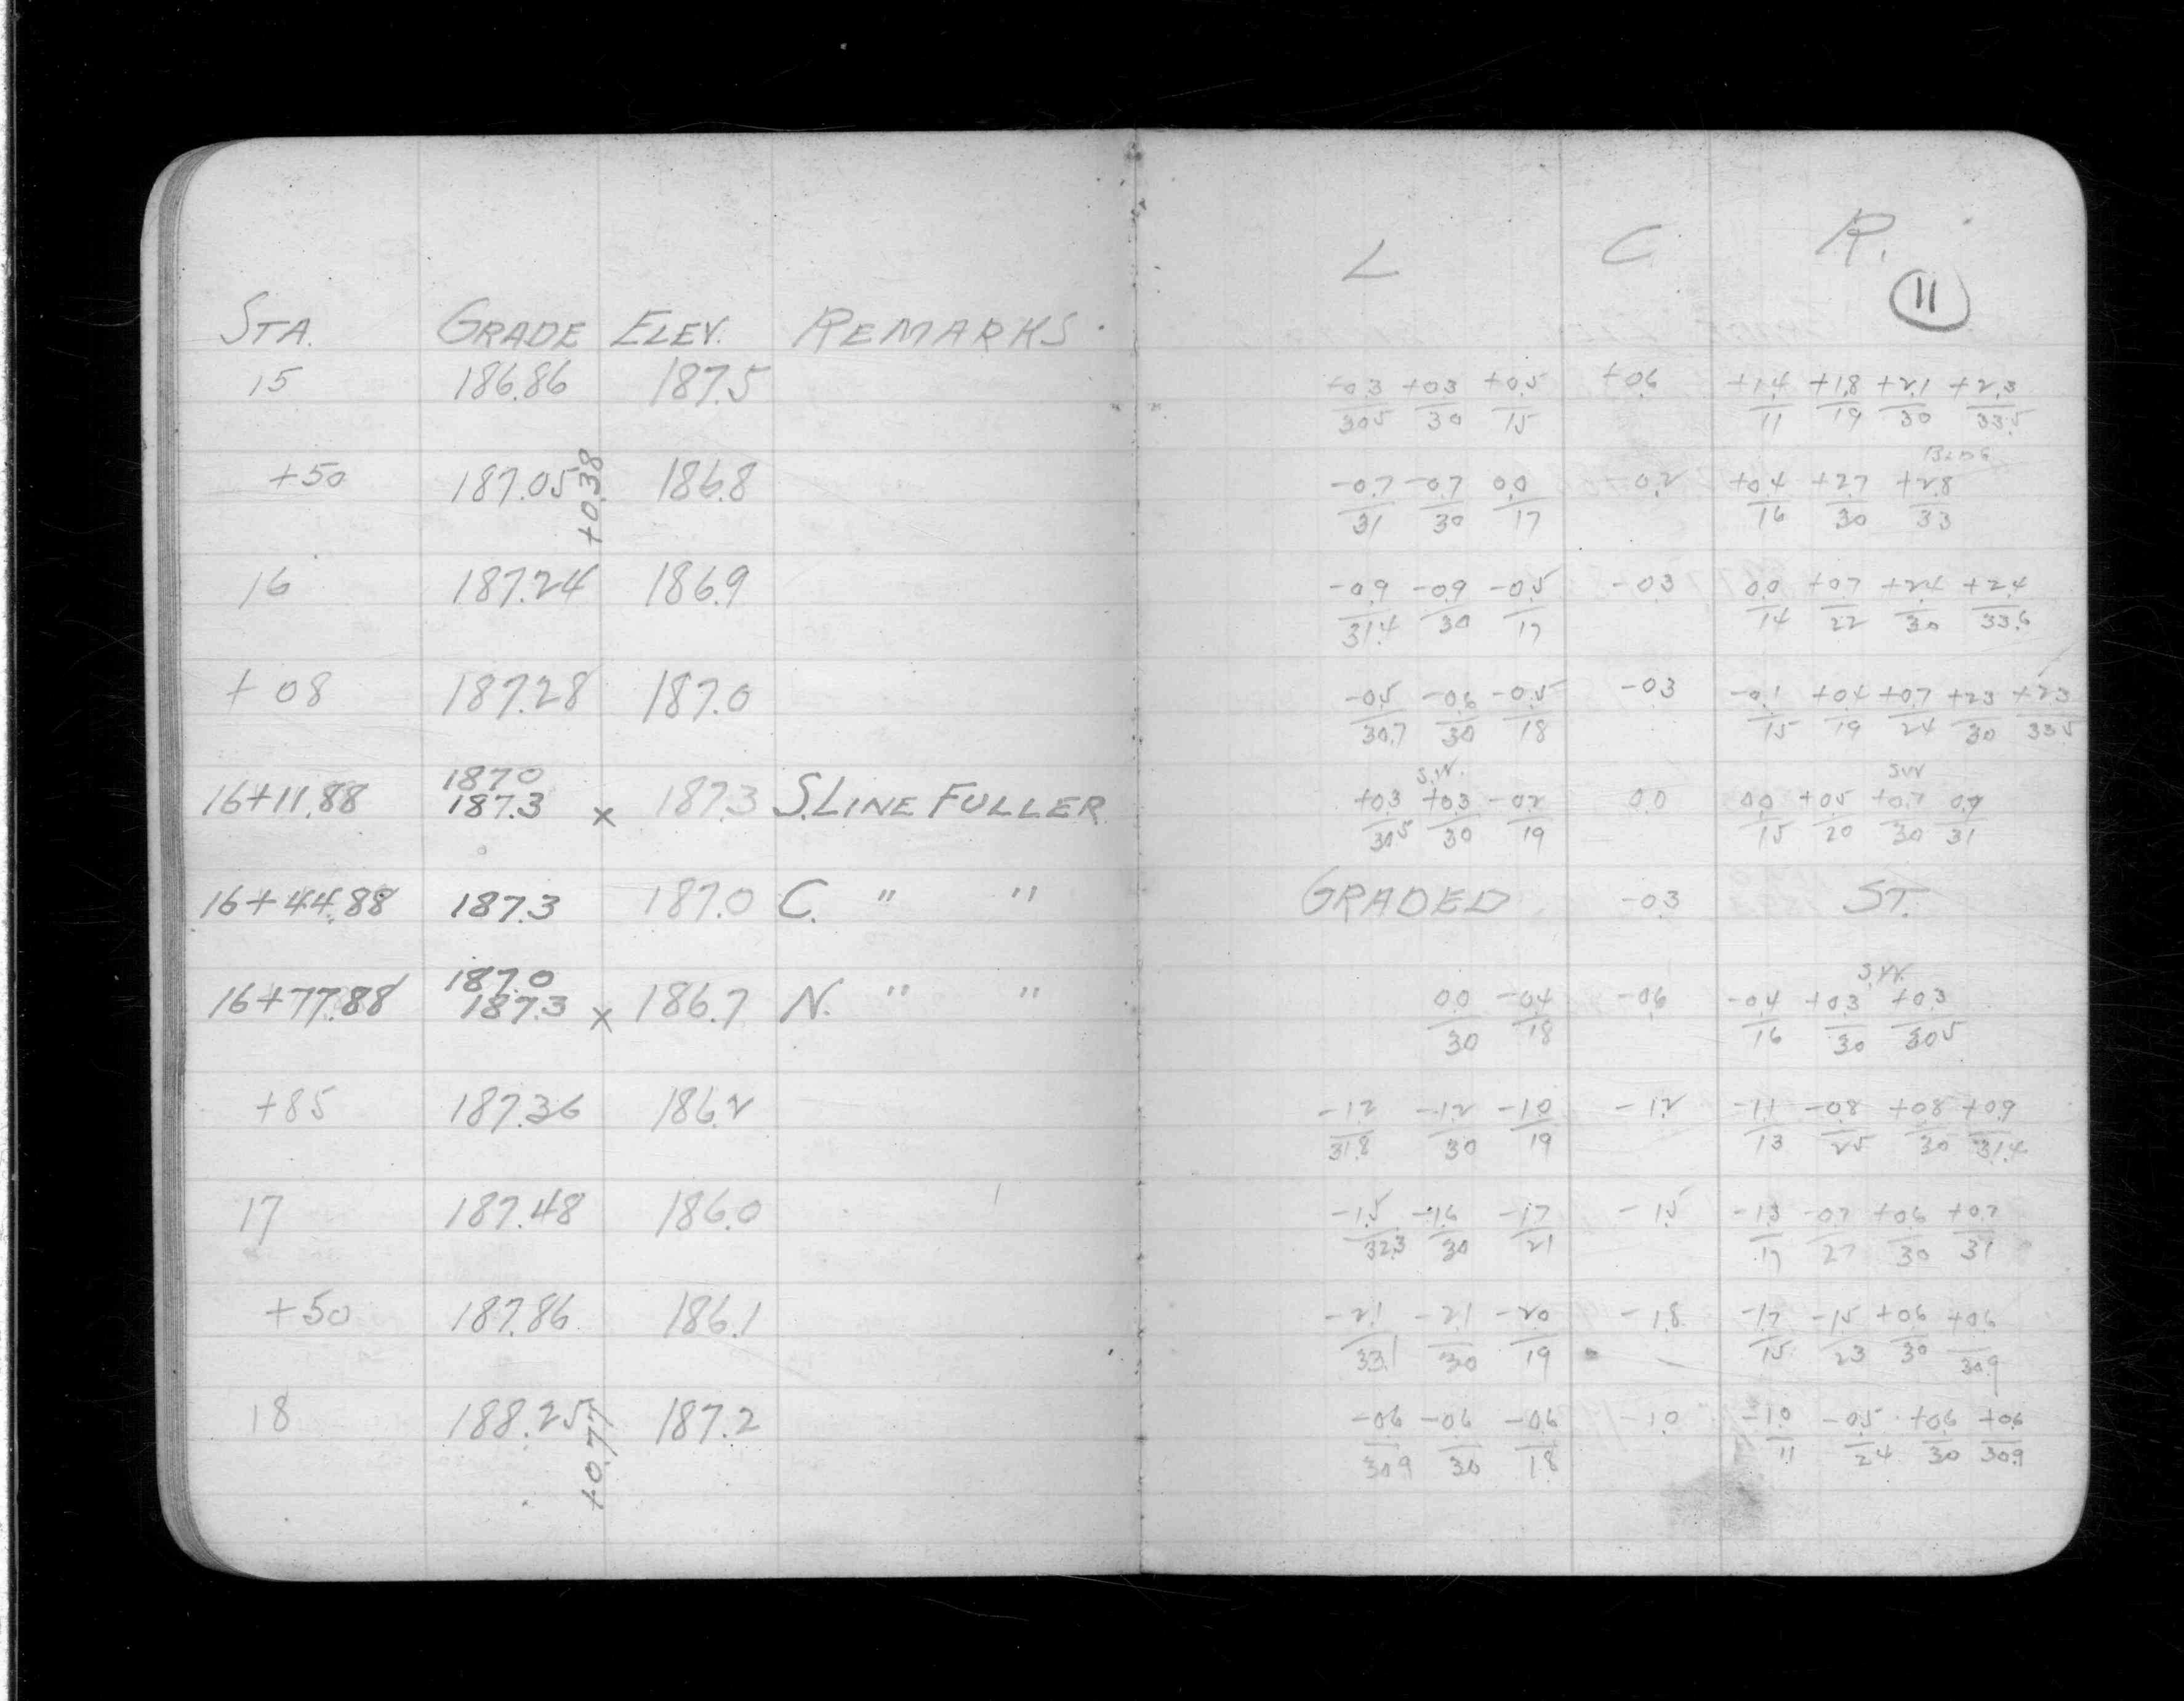 L C R.
11
STA. GRADE ELEV. REMARKS.
15 186.86 187.5
+0.3 +0.3 +0.5 +0.6 +1.4 +1.8 +2.1 +2.3
30.5 30 15 11 19 30 33.5
BLDG
+50 187.05 186.8
+0.38
-0.7 -0.7 0.0 -0.2 +0.4 +2.7 +2.8
31 30 17 16 30 33
16 187.24 186.9
-0.9 -0.9 -0.5 -0.3 0.0 +0.7 +2.4 +2.4
31.4 30 17 14 22 30 33.6
+08 187.28 187.0
-0.5 -0.6 -0.5 -0.3 -0.1 +0.4 +0.7 +2.3 +2.3
30.7 30 18 15 19 24 30 33.5
187.0
16+11.88 187.3 x 187.3 S.LINE FULLER
S.W. SW
+0.3 +0.3 -0.2 0.0 0.0 +0.5 +0.7 0.9
30.5 30 19 15 20 30 31
16+44.88 187.3 187.0 C. " "
GRADED -0.3 ST.
187.0
16+77.88 187.3 x 186.7 N. " "
S.W.
0.0 -0.4 -0.6 -0.4 +0.3 +0.3
30 18 16 30 30.5
+85 187.36 186.2
-1.2 -1.2 -1.0 -1.2 -1.1 -0.8 +0.8 +0.9
31.8 30 19 13 25 30 31.4
17 187.48 186.0
-1.5 -1.6 -1.7 -1.5 -1.3 -0.7 +0.6 +0.7
32.3 30 21 17 27 30 31
+50 187.86 186.1
-2.1 -2.1 -2.0 -1.8 -1.7 -1.5 +0.6 +0.6
33.1 30 19 15 23 30 30.9
18 188.25 187.2
+0.77
-0.6 -0.6 -0.6 -1.0 -1.0 -0.5 +0.6 +0.6
30.9 30 18 11 24 30 30.9